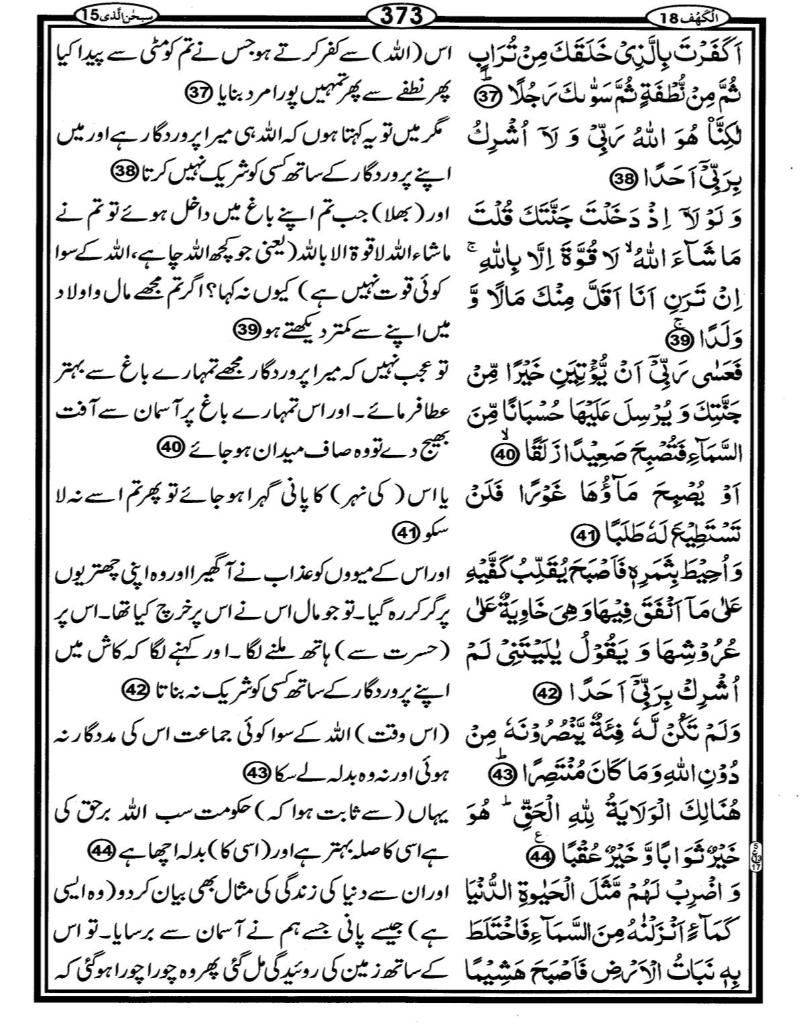 اَلكَهف 18
373
سبحٰن الّذی 15
اَكَفَرْتَ بِالَّذِىْ خَلَقَكَ مِنْ تُرَابٍ
ثُمَّ مِنْ نُّطْفَةٍ ثُمَّ سَوّٰىكَ رَجُلًا ؕ 37
لٰكِنَّا۠ هُوَ اللّٰهُ رَبِّىْ وَ لَاۤ اُشْرِكُ
بِرَبِّىْۤ اَحَدًا 38
وَ لَوْ لَاۤ اِذْ دَخَلْتَ جَنَّتَكَ قُلْتَ
مَا شَآءَ اللّٰهُ ۙ لَا قُوَّةَ اِلَّا بِاللّٰهِ ۚ
اِنْ تَرَنِ اَنَا اَقَلَّ مِنْكَ مَالًا وَّ
وَلَدًا ۚ 39
فَعَسٰى رَبِّىْۤ اَنْ يُّؤْتِيَنِ خَيْرًا مِّنْ
جَنَّتِكَ وَ يُرْسِلَ عَلَيْهَا حُسْبَانًا مِّنَ
السَّمَآءِ فَتُصْبِحَ صَعِيْدًا زَلَقًا ۙ 40
اَوْ يُصْبِحَ مَآؤُهَا غَوْرًا فَلَنْ
تَسْتَطِيْعَ لَهٗ طَلَبًا 41
وَ اُحِيْطَ بِثَمَرِهٖ فَاَصْبَحَ يُقَلِّبُ كَفَّيْهِ
عَلٰى مَاۤ اَنْفَقَ فِيْهَا وَ هِىَ خَاوِيَةٌ عَلٰى
عُرُوْشِهَا وَ يَقُوْلُ يٰلَيْتَنِىْ لَمْ
اُشْرِكْ بِرَبِّىْۤ اَحَدًا 42
وَلَمْ تَكُنْ لَّهٗ فِئَةٌ يَّنْصُرُوْنَهٗ مِنْ
دُوْنِ اللّٰهِ وَ مَا كَانَ مُنْتَصِرًا ؕ 43
هُنَالِكَ الْوَلَايَةُ لِلّٰهِ الْحَقِّ ؕ هُوَ
خَيْرٌ ثَوَابًا وَّ خَيْرٌ عُقْبًا ع 44
وَ اضْرِبْ لَهُمْ مَّثَلَ الْحَيٰوةِ الدُّنْيَا
كَمَآءٍ اَنْزَلْنٰهُ مِنَ السَّمَآءِ فَاخْتَلَطَ
بِهٖ نَبَاتُ الْاَرْضِ فَاَصْبَحَ هَشِيْمًا
اس (اللہ) سے کفر کرتے ہو جس نے تم کو مٹی سے پیدا کیا
پھر نطفے سے پھر تمہیں پورا مرد بنایا 37
مگر میں تو یہ کہتا ہوں کہ اللہ ہی میرا پروردگار ہے اور میں
اپنے پروردگار کے ساتھ کسی کو شریک نہیں کرتا 38
اور (بھلا) جب تم اپنے باغ میں داخل ہوئے تو تم نے
ماشاء اللہ لا قوة الا باللہ (یعنی جو کچھ اللہ چاہے، اللہ کے سوا
کوئی قوت نہیں ہے) کیوں نہ کہا؟ اگر تم مجھے مال و اولاد
میں اپنے سے کمتر دیکھتے ہو 39
تو عجب نہیں کہ میرا پروردگار مجھے تمہارے باغ سے بہتر
عطا فرمائے۔ اور اس تمہارے باغ پر آسمان سے آفت
بھیج دے تو وہ صاف میدان ہو جائے 40
یا اس (کی نہر) کا پانی گہرا ہو جائے تو پھر تم اسے نہ لا
سکو 41
اور اس کے میووں کو عذاب نے آ گھیرا اور وہ اپنی چھتریوں
پر گر کر رہ گیا۔ تو جو مال اس نے اس پر خرچ کیا تھا۔ اس پر
(حسرت سے) ہاتھ ملنے لگا۔ اور کہنے لگا کہ کاش میں
اپنے پروردگار کے ساتھ کسی کو شریک نہ بناتا 42
(اس وقت) اللہ کے سوا کوئی جماعت اس کی مددگار نہ
ہوئی اور نہ وہ بدلہ لے سکا 43
یہاں (سے ثابت ہوا کہ) حکومت سب اللہ برحق کی
ہے اسی کا صلہ بہتر ہے اور (اسی کا) بدلہ اچھا ہے 44
اور ان سے دنیا کی زندگی کی مثال بھی بیان کر دو (وہ ایسی
ہے) جیسے پانی جسے ہم نے آسمان سے برسایا۔ تو اس
کے ساتھ زمین کی روئیدگی مل گئی پھر وہ چورا چورا ہو گئی کہ